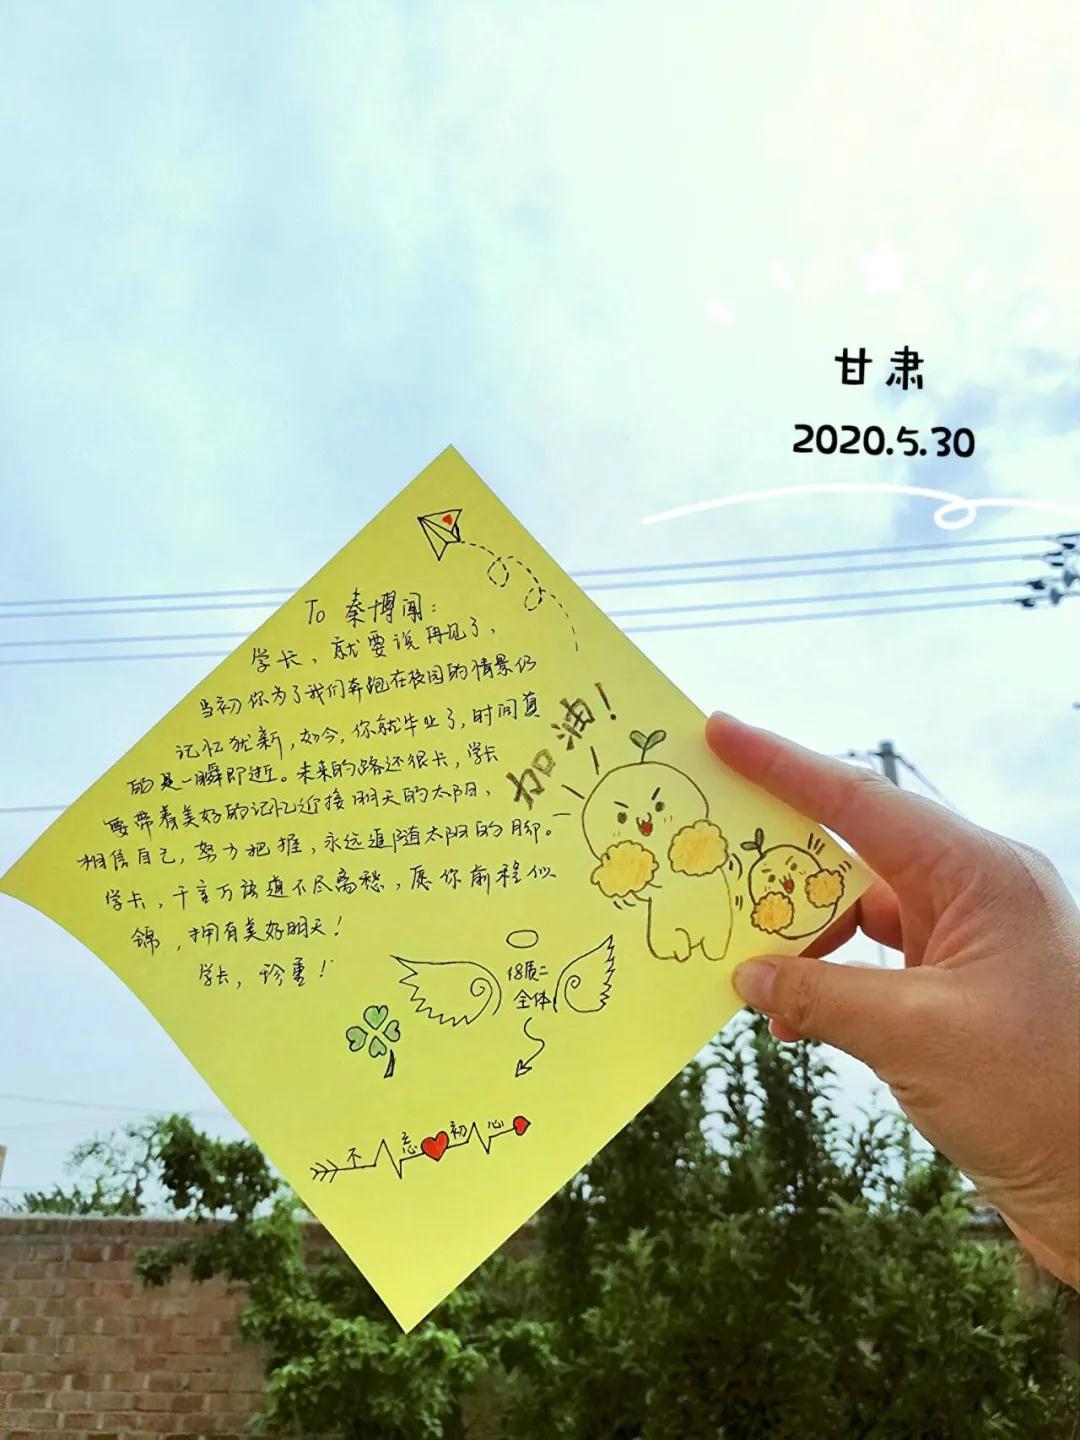 甘肃
2020.5.30
To 秦博闻：
学长，就要说再见了，
当初你为了我们奔跑在校园的情景仍
记忆犹新，如今，你就毕业了，时间真
的是一瞬即逝。未来的路还很长，学长
要带着美好的记忆迎接明天的太阳，
相信自己，努力把握，永远追随太阳的脚。
学长，千言万语道不尽离愁，愿你前程似
锦，拥有美好明天！
学长，珍重！
加油！
18质二
全体
不忘初心